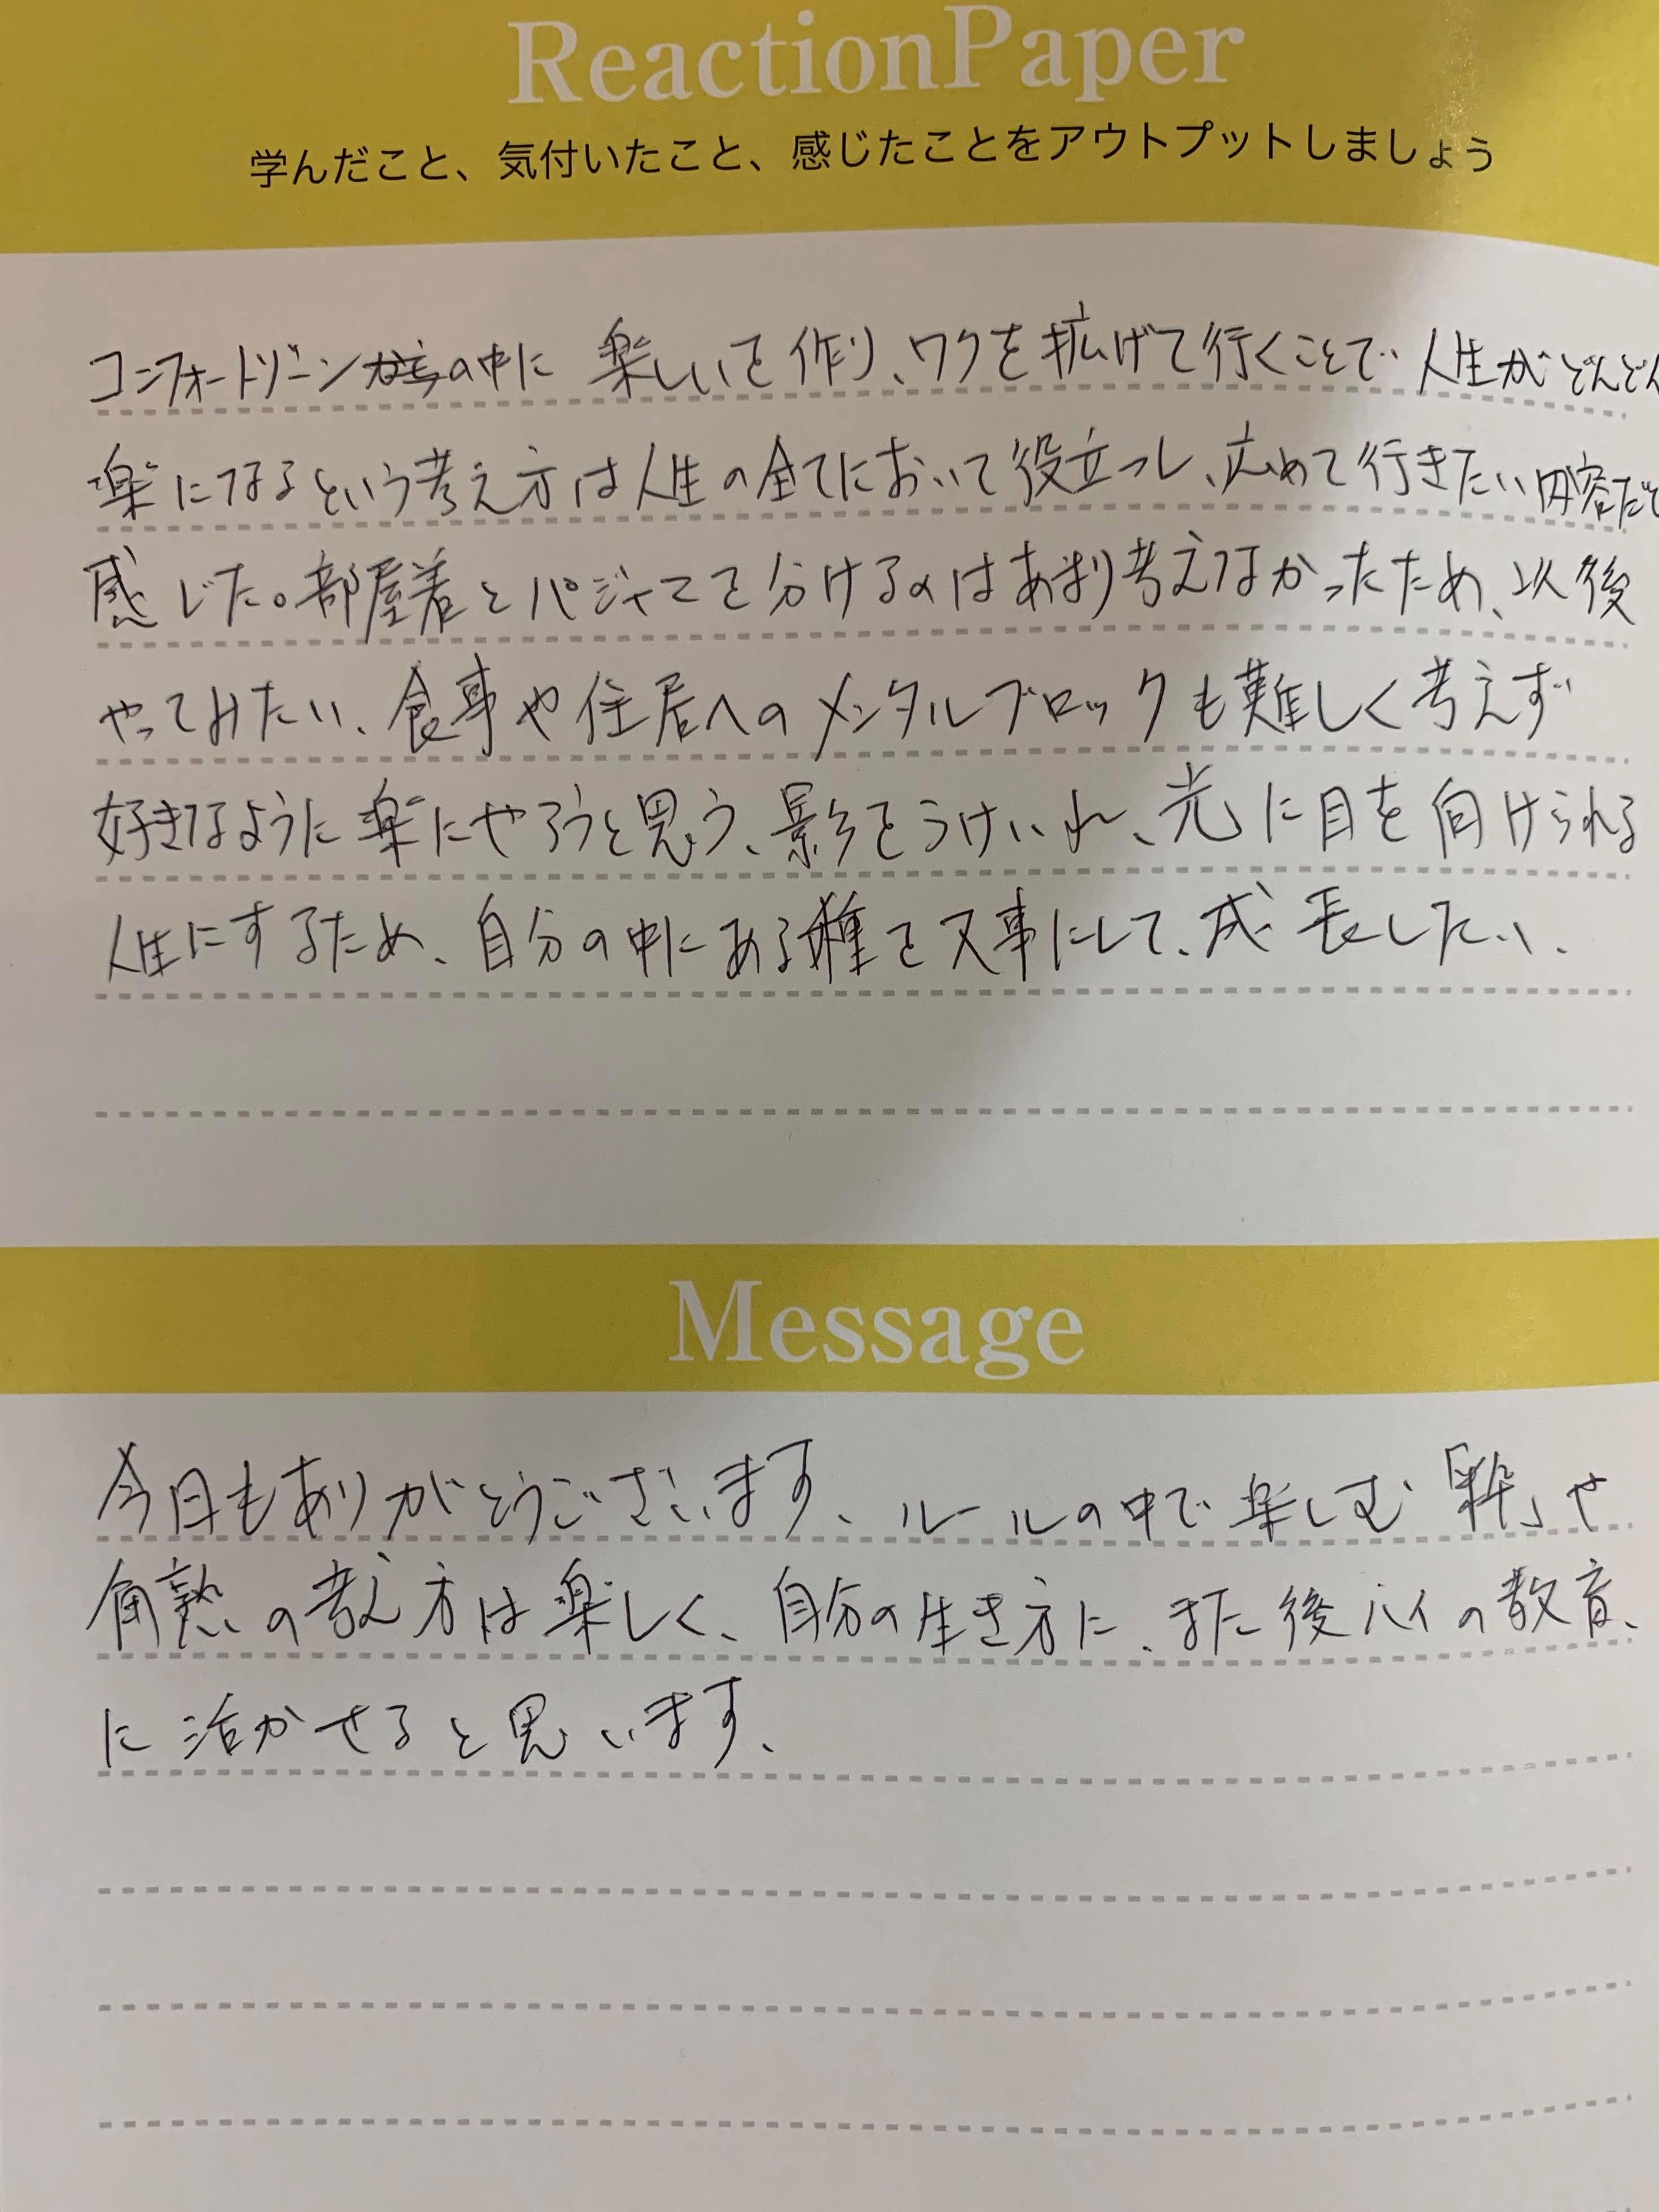 ReactionPaper
学んだこと、気付いたこと、感じたことをアウトプットしましょう
コンフォートゾーンの中に楽しいを作り、ワクを拡げて行くことで人生がどんどん
楽になるという考え方は人生の全てにおいて役立つし、広めて行きたい内容だと
感じた。部屋着とパジャマを分けるのはあまり考えてなかったため、以後
やってみたい、食事や住居へのメンタルブロックも難しく考えず
好きなように楽にやろうと思う、影をうけいれ、光に目を向けられる
人生にするため、自分の中にある種を大事にして、成長したい、
Message
今日もありがとうございます、ルールの中で楽しむ「粋」や
の考え方は楽しく、自分の生き方に、また後ハイの教育、
に活かせると思います、